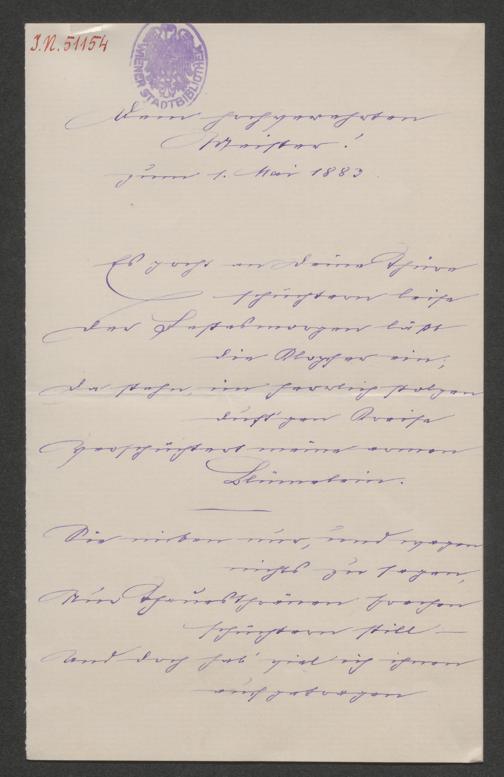 I.N. 51154
WIENER STADTBIBLIOTHEK
Dem hochverehrten
Meister!
zum 1. Mai 1883.
Es pocht an Deine Thüre
schüchtern leise
Der Festesmorgen läßt
die Klopfer ein;
Da stehn im herrlich stolzen
duft'gen Kreise
Verschüchtert meine armen
Blümelein.
Sie nicken nur, und wagen
nichts zu sagen,
Nur Thauesthränen sprechen
schüchtern still –
Und doch hab' viel ich ihnen
aufgetragen